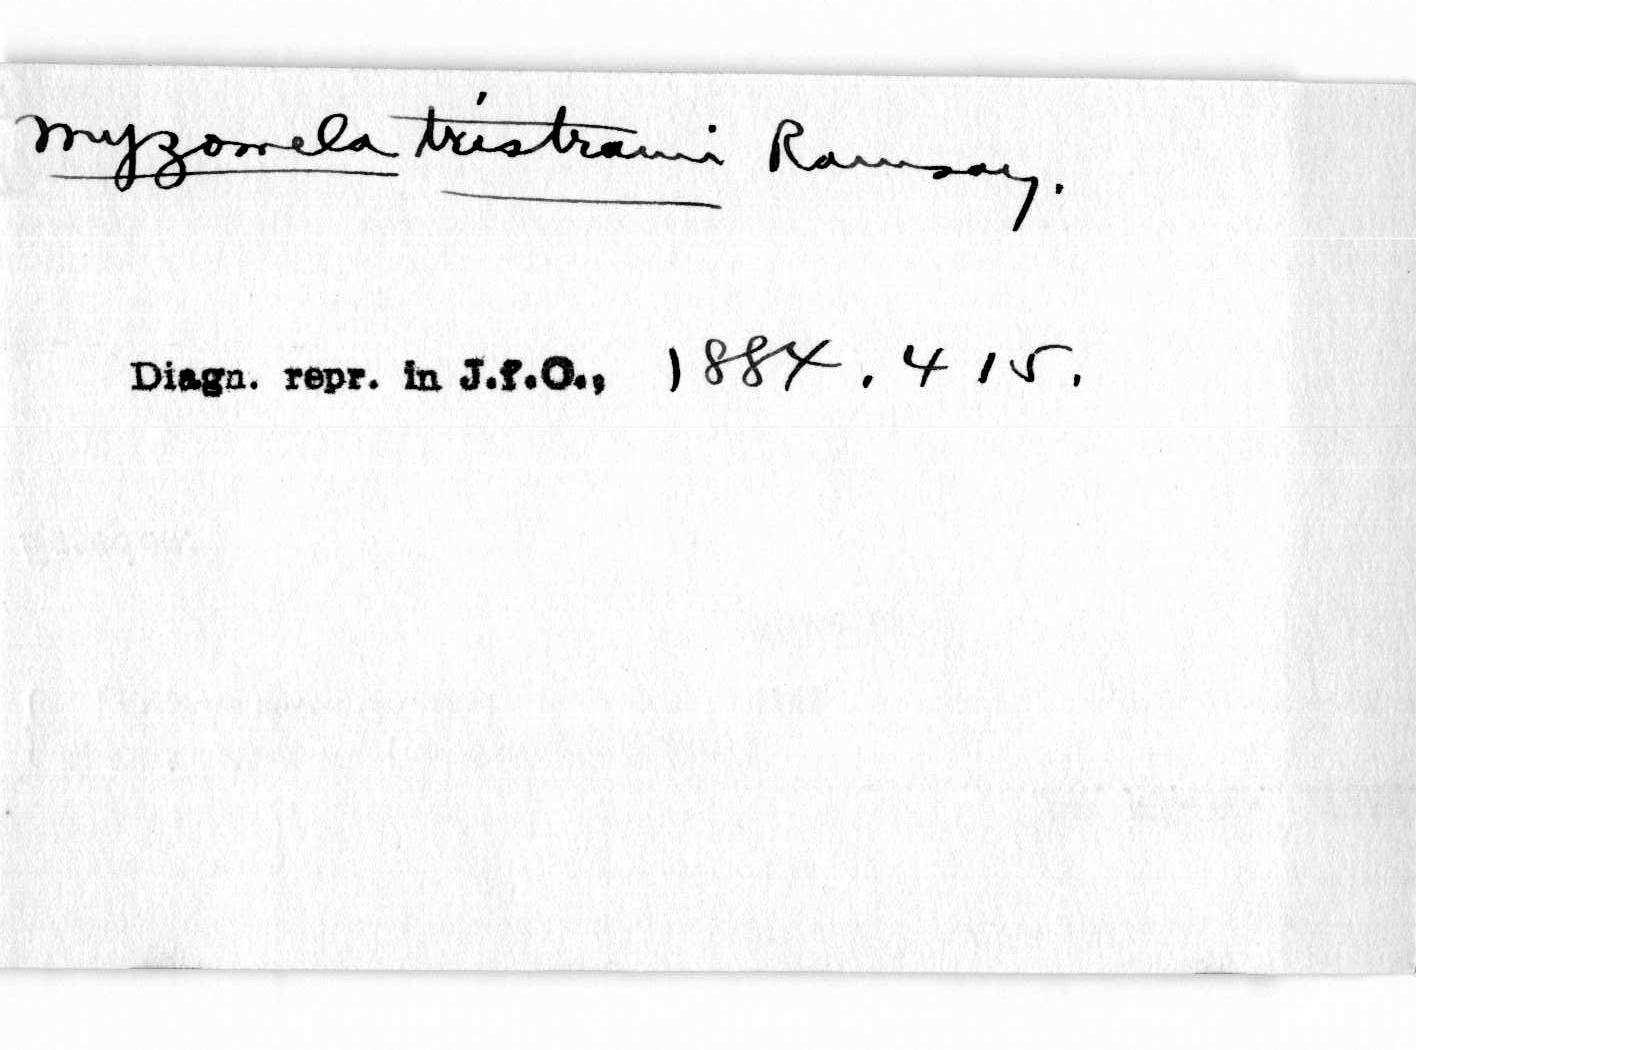 Myzomela tristrami Ramsay.
Diagn. repr. in J.f.O., 1884. 415.